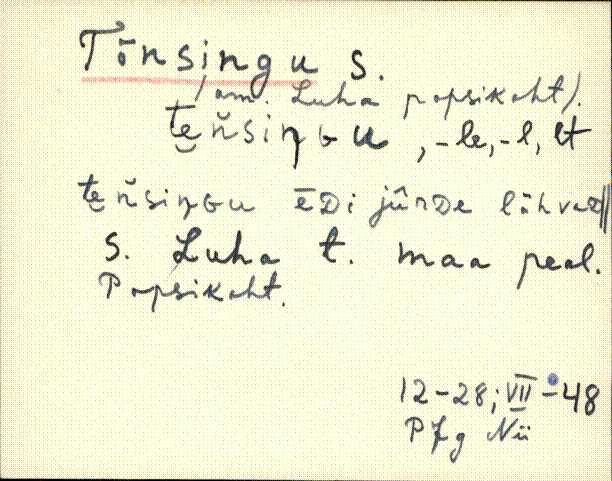 Tõnsingu s.
(om. Luha popsikoht).
te̮ňsiŋGu, -le, -l, lt
te̮ňsiŋGu ēDi jûrDe lähvad ||
s. Luha t. maa peal.
Popsikoht.
12-28; VII-48
Pfg Nii